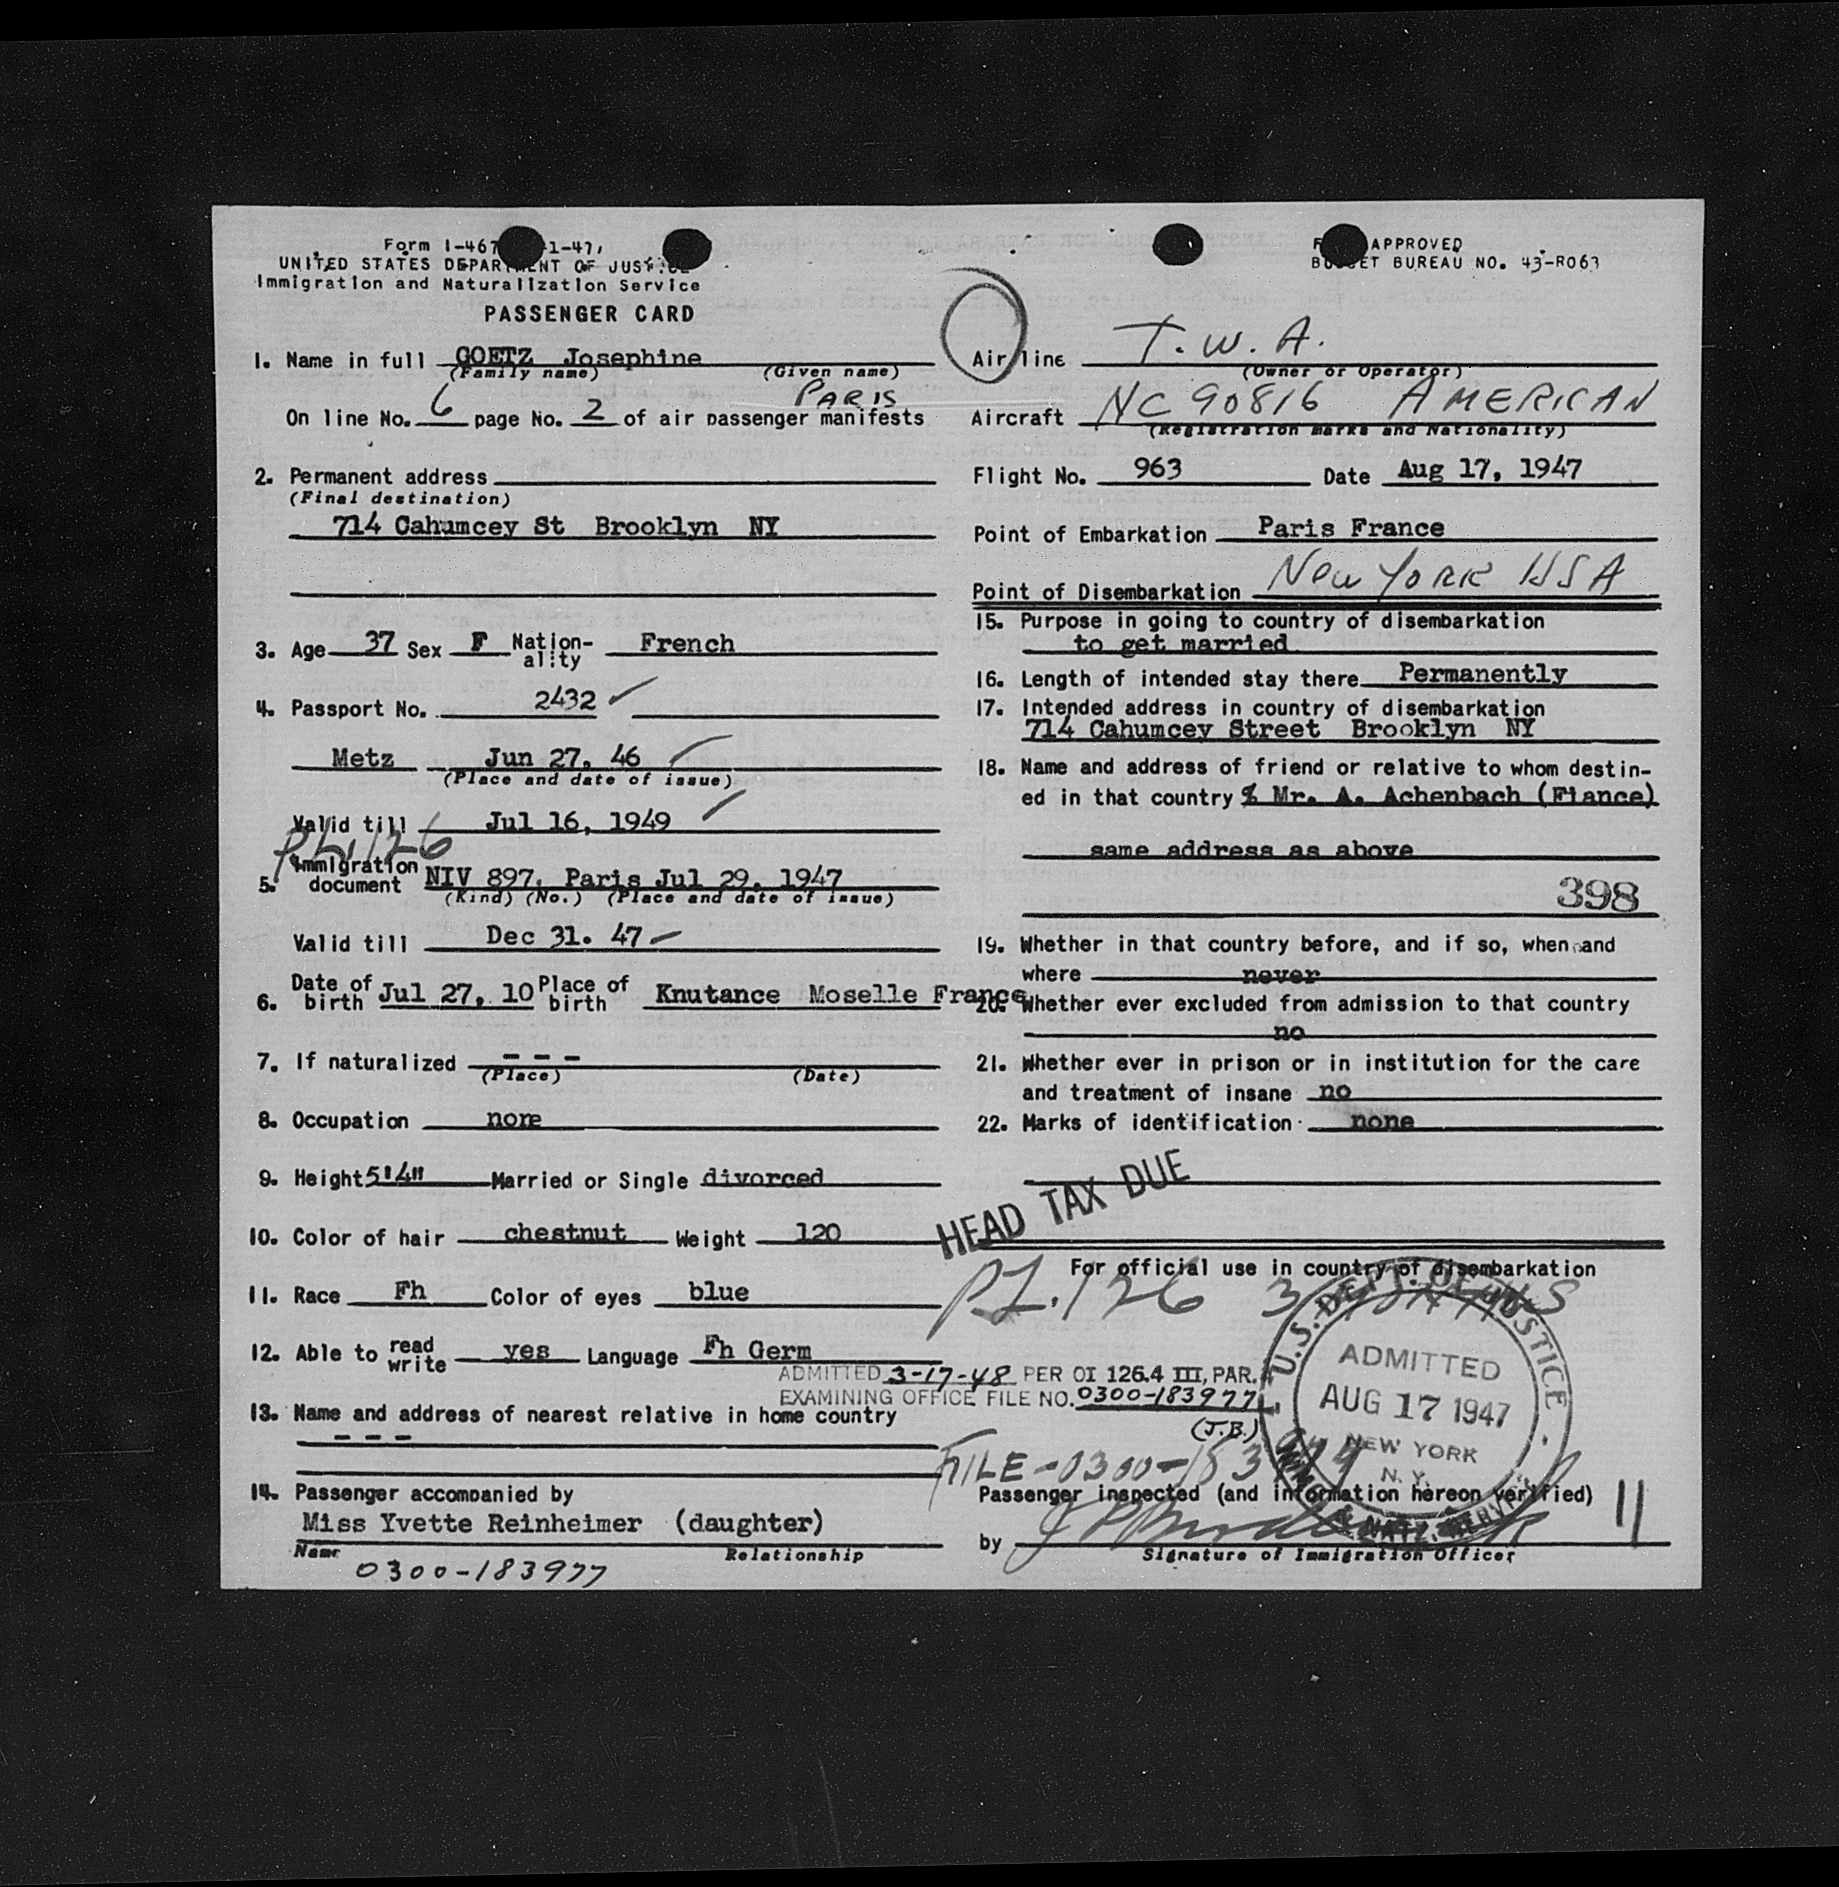 Form I-467 1-47,
UNITED STATES DEPARTMENT OF JUSTICE
Immigration and Naturalization Service
PASSENGER CARD
APPROVED
BUDGET BUREAU NO. 43-R063
1. Name in full GOETZ Josephine
(Family name) (Given name)
PARIS
On line No. 6 page No. 2 of air passenger manifests
2. Permanent address
(Final destination)
714 Cahumcey St Brooklyn NY
3. Age 37 Sex F Nation-ality French
4. Passport No. 2432 ✓
Metz Jun 27, 46
(Place and date of issue)
Valid till Jul 16, 1949
PL. 126
5. Immigration document NIV 897, Paris Jul 29, 1947
(Kind) (No.) (Place and date of issue)
Valid till Dec 31. 47
6. Date of birth Jul 27, 10 Place of birth Knutance Moselle France
7. If naturalized - - -
(Place) (Date)
8. Occupation none
9. Height 5'4" Married or Single divorced
10. Color of hair chestnut Weight 120
11. Race Fh Color of eyes blue
12. Able to read write yes Language Fh Germ
13. Name and address of nearest relative in home country
- - -
14. Passenger accompanied by
Miss Yvette Reinheimer (daughter)
Name Relationship
0300-183977
Air line T.W.A.
(Owner or Operator)
Aircraft NC 90816 AMERICAN
(Registration marks and Nationality)
Flight No. 963 Date Aug 17, 1947
Point of Embarkation Paris France
Point of Disembarkation New YORK USA
15. Purpose in going to country of disembarkation
to get married
16. Length of intended stay there Permanently
17. Intended address in country of disembarkation
714 Cahumcey Street Brooklyn NY
18. Name and address of friend or relative to whom destin-
ed in that country % Mr. A. Achenbach (Fiance)
same address as above
398
19. Whether in that country before, and if so, when and
where never
20. Whether ever excluded from admission to that country
no
21. Whether ever in prison or in institution for the care
and treatment of insane no
22. Marks of identification none
HEAD TAX DUE
For official use in country of disembarkation
PL. 126 3 MONTHS
ADMITTED 3-17-48 PER OI 126.4 III, PAR. 4
EXAMINING OFFICE FILE NO. 0300-183977
(J.B.)
U.S. DEPT. OF JUSTICE
ADMITTED
AUG 17 1947
NEW YORK
N.Y.
IMMIG. & NATZ. SERVICE
FILE-0300-183974
Passenger inspected (and information hereon verified)
by
Signature of Immigration Officer
11